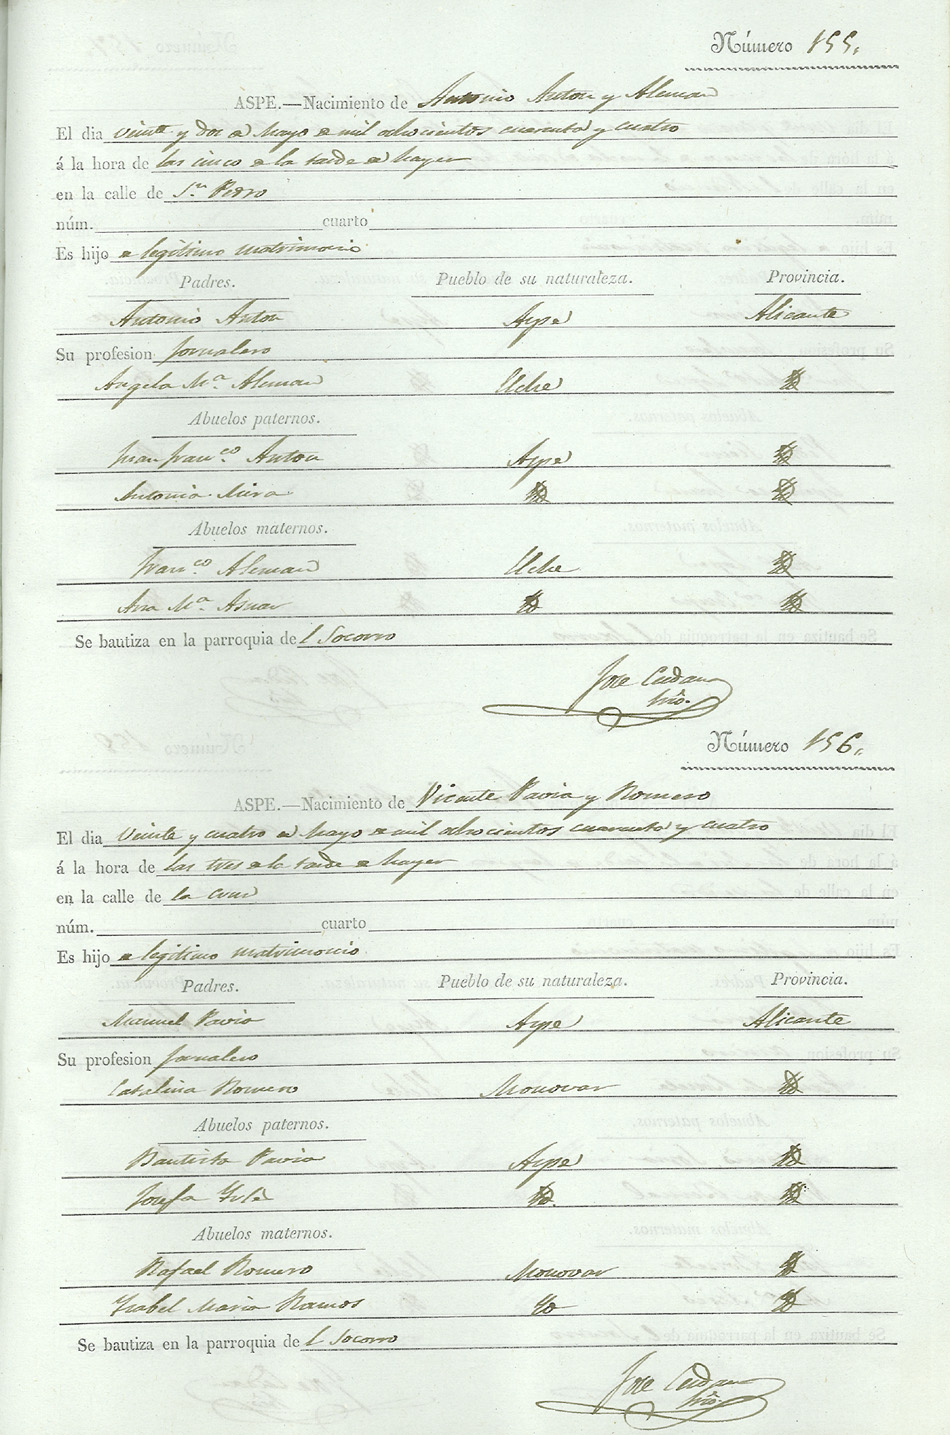 Número 155.
ASPE.—Nacimiento de Antonio Anton y Aleman
El dia veinte y dos de Mayo de mil ochocientos cuarenta y cuatro
á la hora de las cinco de la tarde de hayer
en la calle de Sn. Pedro
núm. cuarto
Es hijo de legitimo matrimonio
Padres. Pueblo de su naturaleza. Provincia.
Antonio Anton Aspe Alicante
Su profesion Jornalero
Angela Ma. Aleman Elche Yd
Abuelos paternos.
Juan Franco. Anton Aspe Yd
Antonia Mira Yd Yd
Abuelos maternos.
Franco. Aleman Elche Yd
Ana Ma. Asnar Yd Yd
Se bautiza en la parroquia del Socorro
Jose
Número 156.
ASPE.—Nacimiento de Vicente Pavia y Romero
El dia veinte y cuatro de Mayo de mil ochocientos cuarenta y cuatro
á la hora de las tres de la tarde de hayer
en la calle de la Cruz
núm. cuarto
Es hijo de legitimo matrimonio
Padres. Pueblo de su naturaleza. Provincia.
Manuel Pavia Aspe Alicante
Su profesion Jornalero
Catalina Romero Monovar Yd
Abuelos paternos.
Bautista Pavia Aspe Yd
Josefa Yd Yd
Abuelos maternos.
Rafael Romero Monovar Yd
Ysabel Maria Ramos Yd Yd
Se bautiza en la parroquia del Socorro
Jose